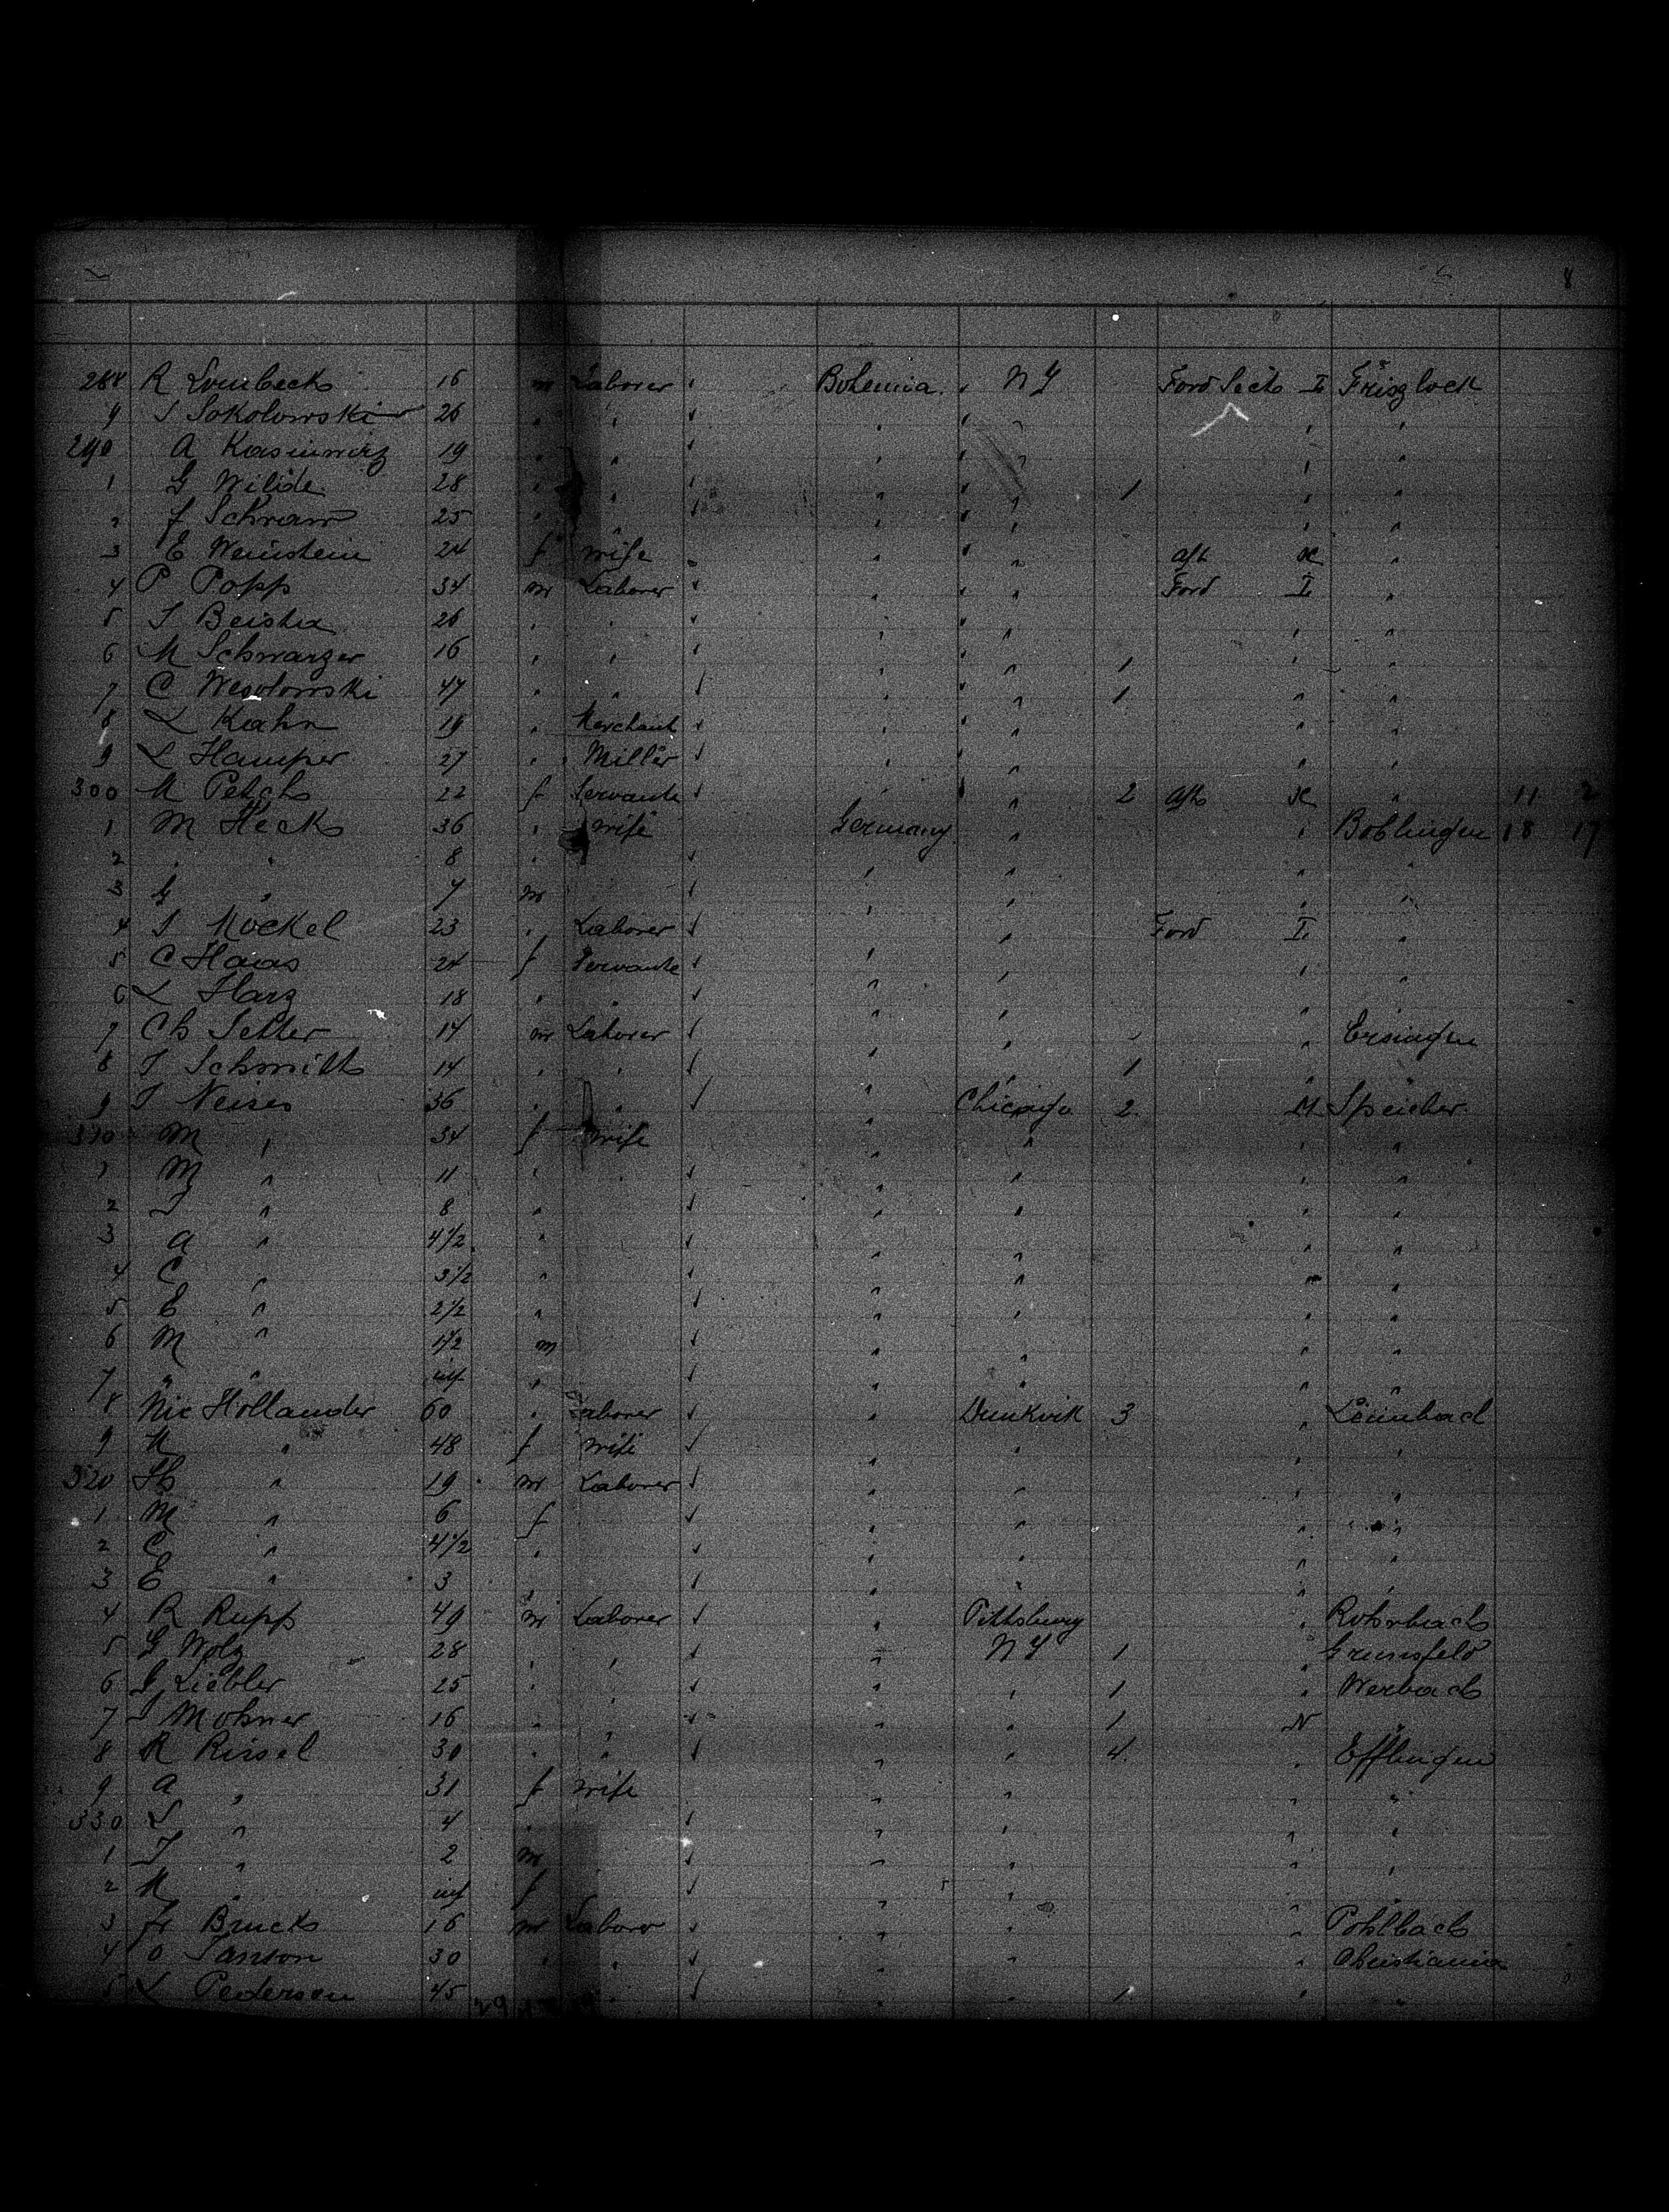 8
288 R Lombecks 16 m Laborer Bohemia N Y Ford Sects I Friszlock
9 S Sokolowski 26 " " " " " "
290 A Kasimwirz 19 " " " " " "
1 G Wilide 28 " " " " 1 " "
2 J Schram 25 " " " " " "
3 E Weinstein 24 f wife " " Aft "
4 P Popp 34 m Laborer " " Ford I "
5 S Beister 26 " " " " " "
6 M Schwarzer 16 " " " " 1 " "
7 C Wesolowski 47 " " " " 1 " "
8 L Kahn 19 " Merchant " " " "
9 L Hamper 27 " Miller " " " "
300 M Petch 22 f Servante " " 2 Aft " 11 2
1 M Heck 36 " wife Germany " " Boblingen 18 17
2 " " 8 " " " " "
3 G " 7 m " " " "
4 S Mockel 23 " Laborer " " Ford I "
5 C Haas 24 f Servante " " " "
6 L Harz 18 " " " " " "
7 Ch Setter 14 m Laborer " " " Ersingen
8 S Schmitt 14 " " " " 1 "
9 J Neises 36 " " " Chicago 2 M Speicher
310 M " 34 f wife " " "
1 M " 11 " " " " "
2 J " 8 " " " " "
3 A " 4 1/2 " " " " "
4 C " 3 1/2 " " " " "
5 E " 2 1/2 " " " " "
6 M " 1 1/2 m " " " "
7 " " inf " " " " "
8 Nic Hollander 60 " Laborer " Dunkvik 3 "
9 M " 48 f wife " " " "
320 Th " 19 m Laborer " " " "
1 M " 6 f " " " "
2 C " 4 1/2 " " " " "
3 E " 3 " " " " "
4 R Rupp 49 m Laborer " Pittsburg " Rohrbach
5 G Wolz 28 " " " N Y 1 " Grunsfeld
6 G Liebler 25 " " " " 1 " Werbach
7 J Mohner 16 " " " 1 N "
8 R Rinsel 30 " " " " 4 " Efflingen
9 A " 31 f wife " " " "
330 L " 4 " " " " "
1 J " 2 m " " " "
2 M " inf f " " " "
3 Fr Brucks 16 m Laborer " " " Pohlbach
4 O Tanson 30 " " " " " Christiania
5 L Pedersen 45 " " " 1 " "